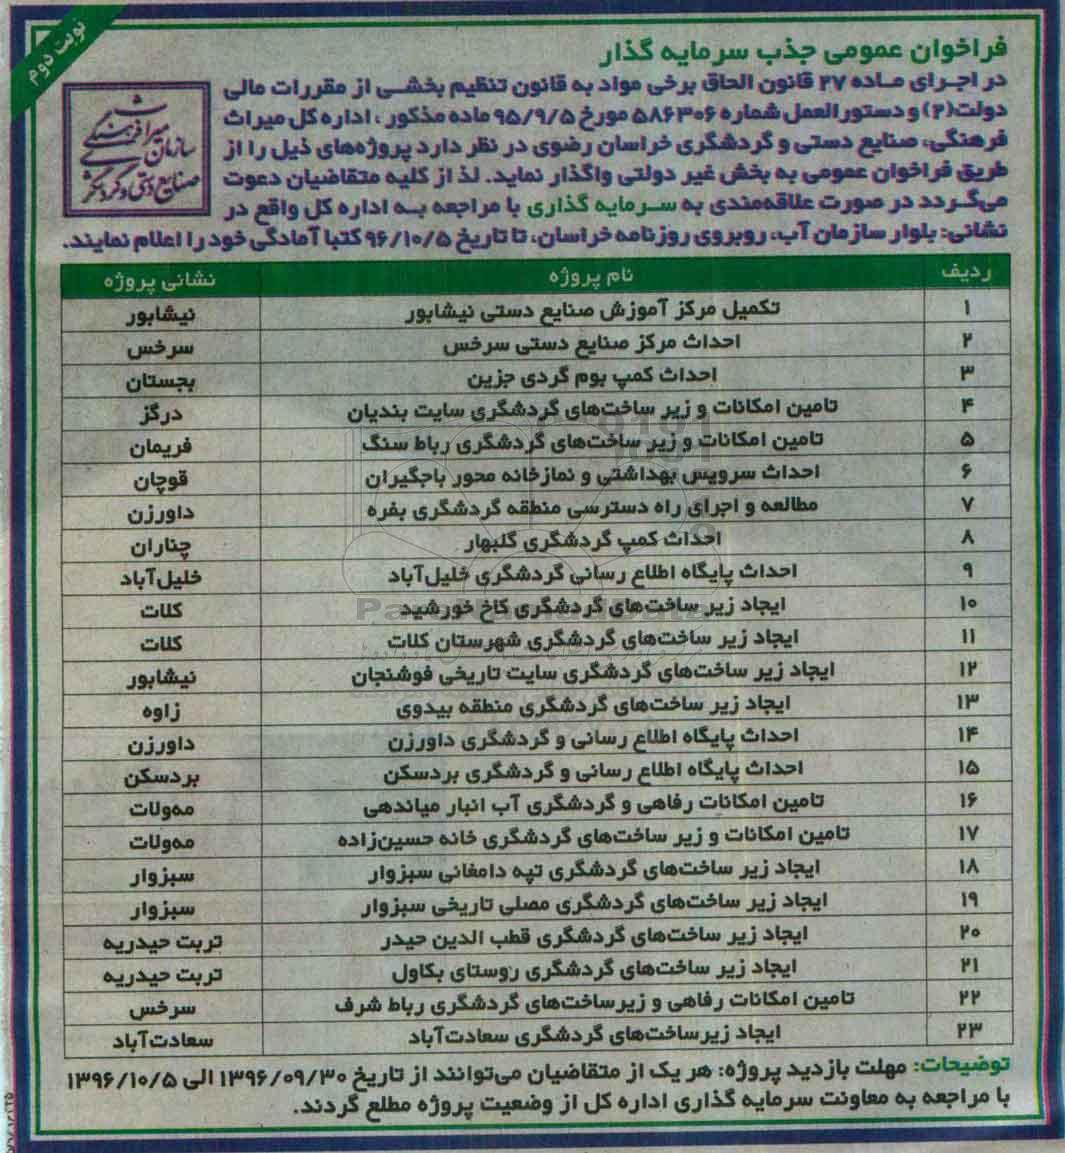 نوبت دوم
فراخوان عمومی جذب سرمایه گذار
در اجرای ماده ۲۷ قانون الحاق برخی مواد به قانون تنظیم بخشی از مقررات مالی
دولت(۲) و دستورالعمل شماره ۵۸۶۳۰۶ مورخ ۹۵/۹/۵ ماده مذکور ، اداره کل میراث
فرهنگی، صنایع دستی و گردشگری خراسان رضوی در نظر دارد پروژه‌های ذیل را از
طریق فراخوان عمومی به بخش غیر دولتی واگذار نماید. لذا از کلیه متقاضیان دعوت
می‌گردد در صورت علاقه‌مندی به سرمایه گذاری با مراجعه به اداره کل واقع در
نشانی: بلوار سازمان آب، روبروی روزنامه خراسان، تا تاریخ ۹۶/۱۰/۵ کتبا آمادگی خود را اعلام نمایند.
سازمان میراث فرهنگی
صنایع دستی و گردشگری
ردیف نام پروژه نشانی پروژه
۱ تکمیل مرکز آموزش صنایع دستی نیشابور نیشابور
۲ احداث مرکز صنایع دستی سرخس سرخس
۳ احداث کمپ بوم گردی جزین بجستان
۴ تامین امکانات و زیر ساخت‌های گردشگری سایت بندیان درگز
۵ تامین امکانات و زیر ساخت‌های گردشگری رباط سنگ فریمان
۶ احداث سرویس بهداشتی و نمازخانه محور باجگیران قوچان
۷ مطالعه و اجرای راه دسترسی منطقه گردشگری بفره داورزن
۸ احداث کمپ گردشگری گلبهار چناران
۹ احداث پایگاه اطلاع رسانی گردشگری خلیل‌آباد خلیل‌آباد
۱۰ ایجاد زیر ساخت‌های گردشگری کاخ خورشید کلات
۱۱ ایجاد زیر ساخت‌های گردشگری شهرستان کلات کلات
۱۲ ایجاد زیر ساخت‌های گردشگری سایت تاریخی فوشنجان نیشابور
۱۳ ایجاد زیر ساخت‌های گردشگری منطقه بیدوی زاوه
۱۴ احداث پایگاه اطلاع رسانی و گردشگری داورزن داورزن
۱۵ احداث پایگاه اطلاع رسانی و گردشگری بردسکن بردسکن
۱۶ تامین امکانات رفاهی و گردشگری آب انبار میاندهی مه‌ولات
۱۷ تامین امکانات و زیر ساخت‌های گردشگری خانه حسین‌زاده مه‌ولات
۱۸ ایجاد زیر ساخت‌های گردشگری تپه دامغانی سبزوار سبزوار
۱۹ ایجاد زیر ساخت‌های گردشگری مصلی تاریخی سبزوار سبزوار
۲۰ ایجاد زیر ساخت‌های گردشگری قطب الدین حیدر تربت حیدریه
۲۱ ایجاد زیر ساخت‌های گردشگری روستای بکاول تربت حیدریه
۲۲ تامین امکانات رفاهی و زیرساخت‌های گردشگری رباط شرف سرخس
۲۳ ایجاد زیرساخت‌های گردشگری سعادت‌آباد سعادت‌آباد
توضیحات: مهلت بازدید پروژه: هر یک از متقاضیان می‌توانند از تاریخ ۱۳۹۶/۰۹/۳۰ الی ۱۳۹۶/۱۰/۵
با مراجعه به معاونت سرمایه گذاری اداره کل از وضعیت پروژه مطلع گردند.